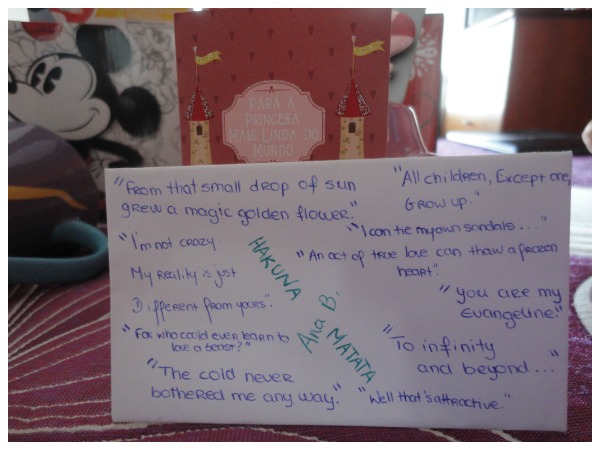 PARA A
PRINCESA
MAIS LINDA DO
MUNDO
"From that small drop of sun
grew a magic golden flower."
"All children, Except one,
Grow up."
"I'm not crazy.
My Reality is just
Different from yours".
"I can tie my own sandals..."
"An act of true love can thaw a frozen
heart".
HAKUNA
Ana B.
MATATA
"you are my
Evangeline"
"For who could ever learn to
love a beast?"
"To infinity
and beyond..."
"The cold never
bothered me any way."
"Well that's attractive."